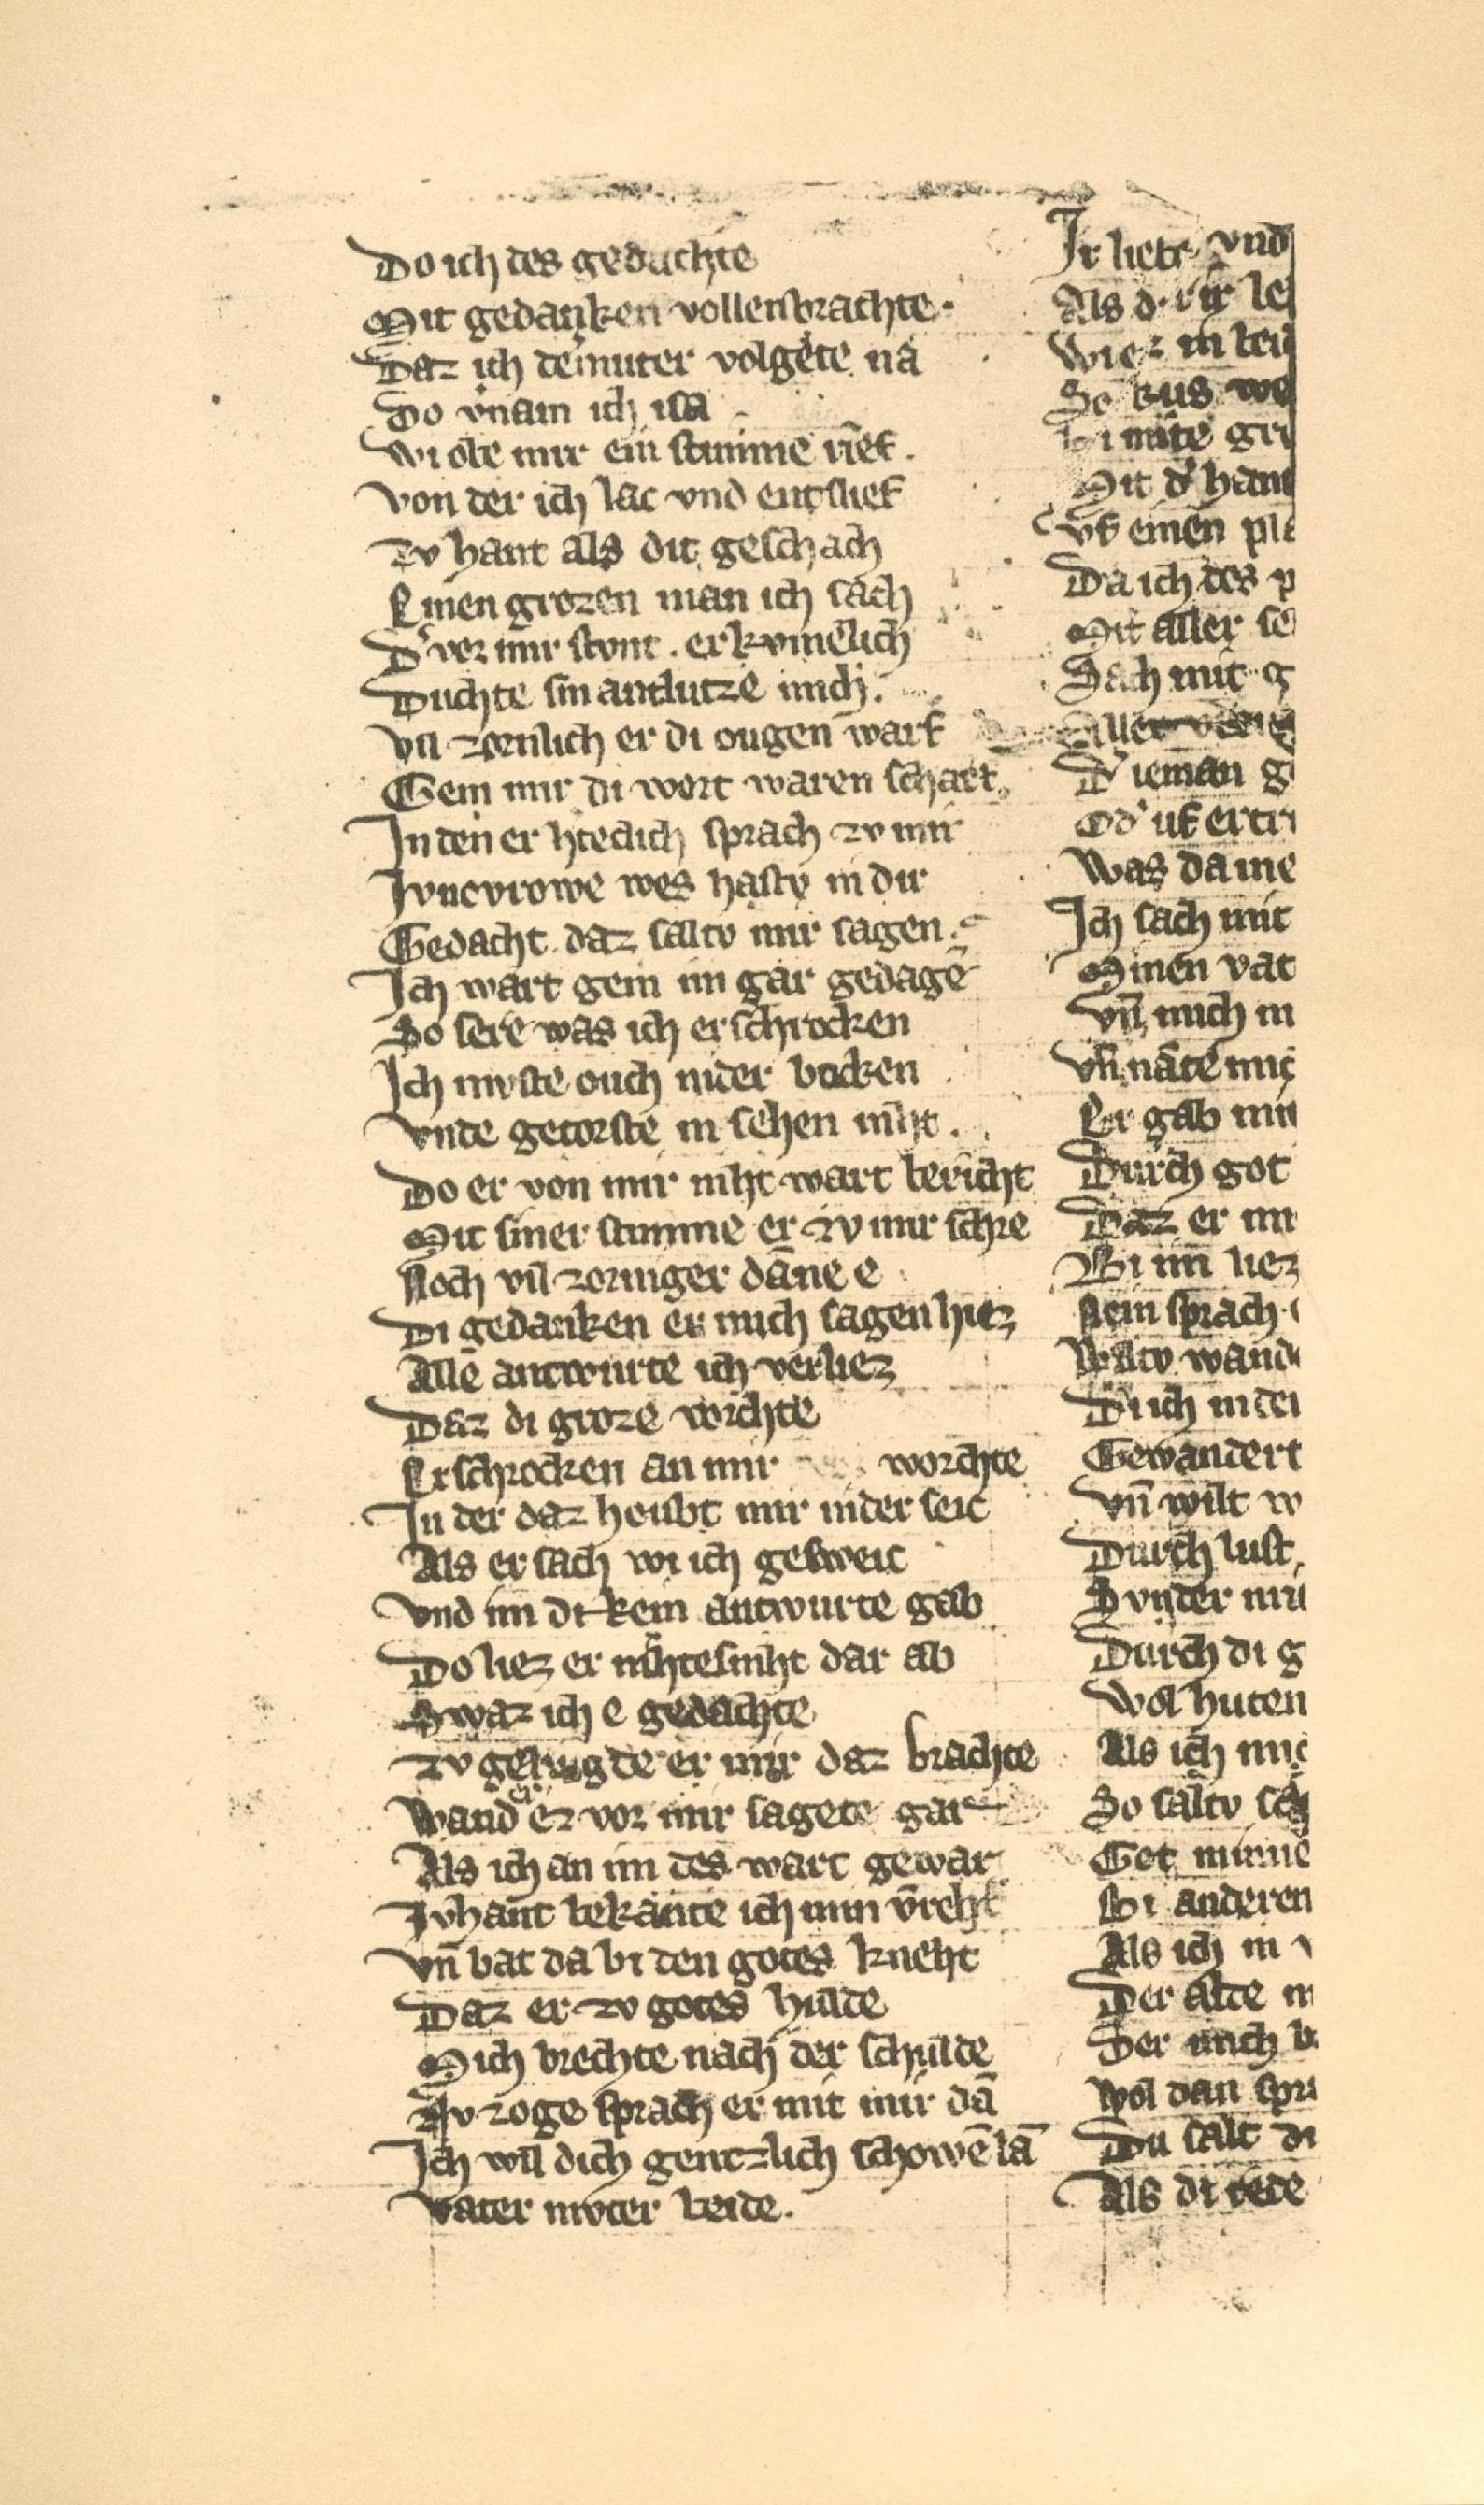 Do ich des gedachte
Mit gedanken vollenbrachte.
Daz ich der muter volgete na
Do v̓nam ich isa
Wi obe mir ein stimme rief.
Von der ich lac vnd entslief
Zv hant als dit geschach
Einen grozen man ich sach
D̓ vor mir stvnt. erkvmelich
Duchte sin antlutze mich.
Vil zornlich er di ougen warf
Gein mir di wort waren scharf.
In den er hteclich sprach zv mir
Jvncvrowe wes hastv in dir
Gedacht daz saltv mir sagen.
Ich wart gein im gar gedagē
So sere was ich erschrocken
Ich mvste ouch nider bucken
Vnde getorste in sehen niht.
Do er von mir niht wart bericht
Mit siner stimme er zv mir schre
Noch vil zorniger dāne e
Di gedanken er mich sagen hiez
Allē antwurte ich verliez
Daz di groze vorchte
Erschrocken an mir worchte
In der daz houbt mir nider seic
Als er sach wi ich gesweic
Vnd im dekein antwurte gab
Do liez er nihtesniht dar ab
Swaz ich e gedachte
Zv gehugde er mir daz brachte
Wand erz vor mir sagete gar
Als ich an im des wart gewar
Zvhant bekante ich min v̄reht
Vn̄ bat da bi den gotes kneht
Daz er zv gotes hulde
Mich brechte nach der schulde
Nv zoge sprach er mit mir dā
Ich wil dich gentzlich schowē lā
Vater mvter beide.
Ir liebe vnd
Als d̓ ir le
Wiez in bei
So kus we
Mit d̓ han
Vf einen pla
Da ich des p
Mit aller se
Sach mit g
D̓ ieman g
Od̓ uf ertri
Was da me
Ich sach mit
Minen vat
Vn̄ mich m
Vn̄ nāte mic
Er gab mir
Durch got
Daz er mi
Bi im liez
Nein sprach
Waltv wand
Dich in der
Gewandert
Vn̄ wilt w
Durch lust
Svnder mu
Durch di g
Wol huten
Als ich mic
So saltv sch
Get minne
Bi anderen
Als ich in v
Der alte m
Der mich b
Wol dan spra
Du salt di
Als di rede